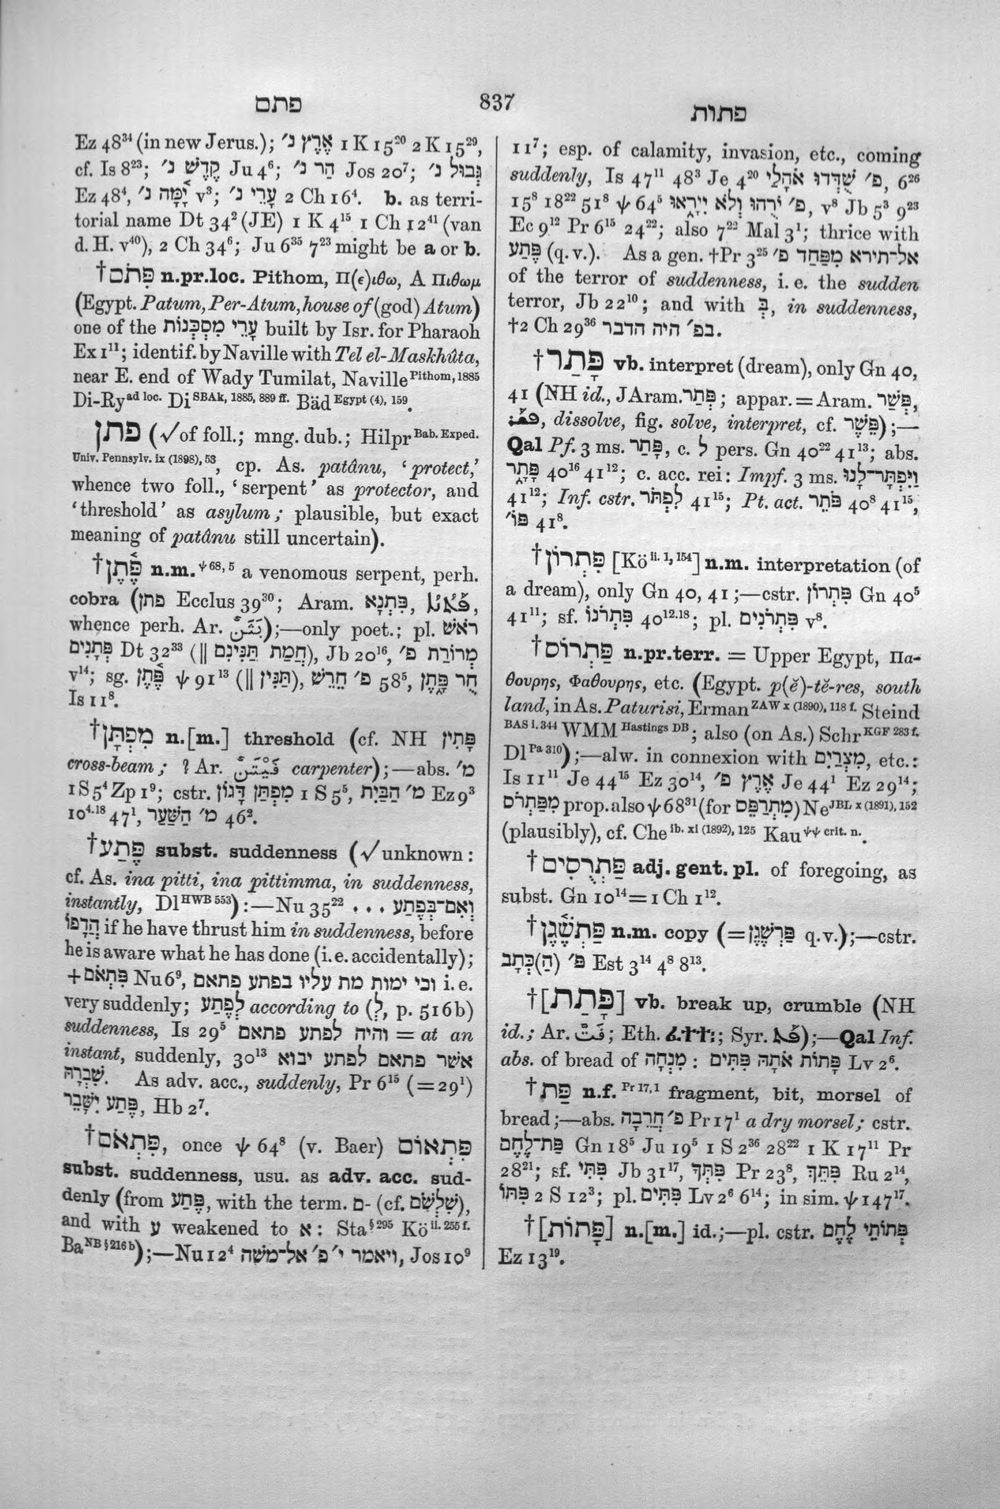 פתם
837
פתות
Ez 48³⁴ (in new Jerus.); אֶרֶץ נ׳ 1 K 15²⁰ 2 K 15²⁹,
cf. Is 8²³; קֶדֶשׁ נ׳ Ju 4⁶; הַר נ׳ Jos 20⁷; גְּבוּל נ׳
Ez 48⁴, יָמָּה נ׳ v³; עָרֵי נ׳ 2 Ch 16⁴. b. as terri-
torial name Dt 34² (JE) 1 K 4¹⁵ 1 Ch 12⁴¹ (van
d. H. v⁴⁰), 2 Ch 34⁶; Ju 6³⁵ 7²³ might be a or b.
†פִּתֹם n.pr.loc. Pithom, Π(ε)ιθω, A Πιθωμ
(Egypt. Patum, Per-Atum, house of (god) Atum)
one of the עָרֵי מִסְכְּנוֹת built by Isr. for Pharaoh
Ex 1¹¹; identif. by Naville with Tel el-Maskhûta,
near E. end of Wady Tumilat, Naville Pithom, 1885
Di-Ry ad loc. Di SBAk, 1885, 889 ff. Bäd Egypt (4), 159.
פתן (√ of foll.; mng. dub.; Hilpr Bab. Exped.
Univ. Pennsylv. ix (1898), 53, cp. As. patânu, ‘protect,’
whence two foll., ‘serpent’ as protector, and
‘threshold’ as asylum; plausible, but exact
meaning of patânu still uncertain).
†פֶּ֫תֶן n.m. ψ 58, 5 a venomous serpent, perh.
cobra (פתן Ecclus 39³⁰; Aram. פִּתְנָא,
whence perh. Ar. );—only poet.; pl. רֹאשׁ
פְּתָנִים Dt 32³³ (‖ חֲמַת תַּנִּינִם), Jb 20¹⁶, מְרוֹרַת פ׳
v¹⁴; sg. פֶּ֫תֶן ψ 91¹³ (‖ תַּנִּין), פ׳ חֵרֵשׁ 58⁵, חֻר פָּתֶן
Is 11⁸.
†מִפְתָּן n.[m.] threshold (cf. NH פָּתִין
cross-beam; ? Ar. carpenter);—abs. מ׳
1 S 5⁴ Zp 1⁹; cstr. מִפְתַּן דָּגוֹן 1 S 5⁵, מ׳ הַבַּיִת Ez 9³
10⁴·¹⁸ 47¹, מ׳ הַשַּׁעַר 46².
†פֶּתַע subst. suddenness (√ unknown:
cf. As. ina pitti, ina pittimma, in suddenness,
instantly, Dl HWB 553):—Nu 35²² ... וְאִם־בְּפֶתַע
הֲדָפוֹ if he have thrust him in suddenness, before
he is aware what he has done (i.e. accidentally);
+ פִּתְאֹם Nu 6⁹, וכי ימות מת עליו בפתע פתאם i.e.
very suddenly; לְפֶתַע according to (לְ, p. 516 b)
suddenness, Is 29⁵ והיה לפתע פתאם = at an
instant, suddenly, 30¹³ אשר פתאם לפתע יבוא
שִׁבְרָהּ. As adv. acc., suddenly, Pr 6¹⁵ (= 29¹)
פֶּתַע יִשָּׁבֵר, Hb 2⁷.
†פִּתְאֹם, once ψ 64⁸ (v. Baer) פִּתְאוֹם
subst. suddenness, usu. as adv. acc. sud-
denly (from פֶּתַע, with the term. ם- (cf. שִׁלְשֹׁם),
and with ע weakened to א: Sta §295 Kö ii. 255 f.
Ba NB §216 b);—Nu 12⁴ ויאמר י׳ פ׳ אל־משה, Jos 10⁹
11⁷; esp. of calamity, invasion, etc., coming
suddenly, Is 47¹¹ 48³ Je 4²⁰ פ׳ שֻׁדְּדוּ אֹהָלַי, 6²⁶
15⁸ 18²² 51⁸ ψ 64⁵ פ׳ יֹרֻהוּ וְלֹא יִירָאוּ, v⁸ Jb 5³ 9²³
Ec 9¹² Pr 6¹⁵ 24²²; also 7²² Mal 3¹; thrice with
פֶּתַע (q.v.). As a gen. †Pr 3²⁵ אל־תירא מִפַּחַד פ׳
of the terror of suddenness, i. e. the sudden
terror, Jb 22¹⁰; and with בְּ, in suddenness,
†2 Ch 29³⁶ בפ׳ היה הדבר.
†פָּתַר vb. interpret (dream), only Gn 40,
41 (NH id., J Aram. פְּתַר; appar. = Aram. פְּשַׁר,
, dissolve, fig. solve, interpret, cf. פֵּשֶׁר);—
Qal Pf. 3 ms. פָּתַר, c. לְ pers. Gn 40²² 41¹³; abs.
פָּתָר 40¹⁶ 41¹²; c. acc. rei: Impf. 3 ms. וַיִּפְתָּר־לָנוּ
41¹²; Inf. cstr. לִפְתֹּר 41¹⁵; Pt. act. פֹּתֵר 40⁸ 41¹⁵,
פּוֹ׳ 41⁸.
†פִּתְרוֹן [Kö ii. 1, 154] n.m. interpretation (of
a dream), only Gn 40, 41;—cstr. פִּתְרוֹן Gn 40⁵
41¹¹; sf. פִּתְרֹנוֹ 40¹²·¹⁸; pl. פִּתְרֹנִים v⁸.
†פַּתְרוֹס n.pr.terr. = Upper Egypt, Πα-
θουρης, Φαθουρης, etc. (Egypt. p(ĕ)-tĕ-res, south
land, in As. Paturisi, Erman ZAW x (1890), 118 f. Steind
BAS i. 344 WMM Hastings DB; also (on As.) Schr KGF 283 f.
Dl Pa 310);—alw. in connexion with מִצְרַיִם, etc.:
Is 11¹¹ Je 44¹⁵ Ez 30¹⁴, אֶרֶץ פ׳ Je 44¹ Ez 29¹⁴;
מִפַּתְרֹס prop. also ψ 68³¹ (for מִתְרַפֵּס) Ne JBL x (1891), 152
(plausibly), cf. Che ib. xi (1892), 125 Kau ψψ crit. n..
†פַּתְרֻסִים adj. gent. pl. of foregoing, as
subst. Gn 10¹⁴ = 1 Ch 1¹².
†פַּתְשֶׁ֫גֶן n.m. copy (= פַּרְשֶׁגֶן q.v.);—cstr.
פ׳ (הַ)כְּתָב Est 3¹⁴ 4⁸ 8¹³.
†[פָּתַת] vb. break up, crumble (NH
id.; Ar. فَتَّ; Eth. ; Syr. );—Qal Inf.
abs. of bread of מִנְחָה: פָּתוֹת אֹתָהּ פִּתִּים Lv 2⁶.
†פַּת n.f. Pr 17, 1 fragment, bit, morsel of
bread;—abs. פ׳ חֲרֵבָה Pr 17¹ a dry morsel; cstr.
פַּת־לֶחֶם Gn 18⁵ Ju 19⁵ 1 S 2³⁶ 28²² 1 K 17¹¹ Pr
28²¹; sf. פִּתִּי Jb 31¹⁷, פִּתְּךָ Pr 23⁸, פִּתֵּךְ Ru 2¹⁴,
פִּתּוֹ 2 S 12³; pl. פִּתִּים Lv 2⁶ 6¹⁴; in sim. ψ 147¹⁷.
†[פָּתוֹת] n.[m.] id.;—pl. cstr. פְּתוֹתֵי לָחֶם
Ez 13¹⁹.